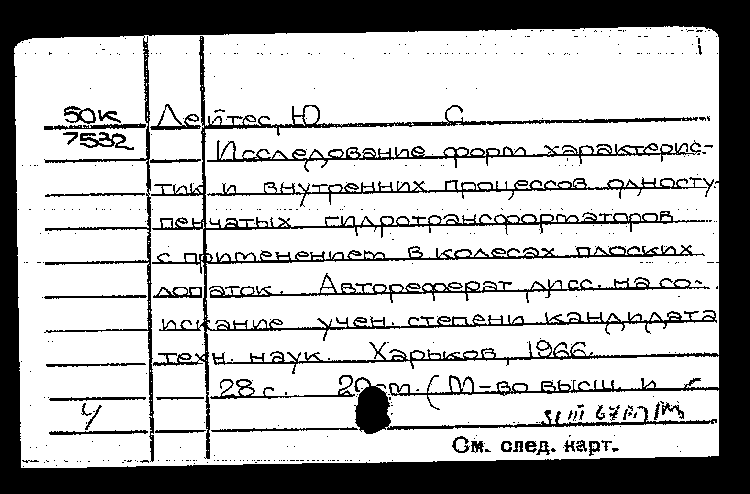 50К Лейтес, Ю С
7532
Исследование форм характерис-
тик и внутренних процессов односту-
пенчатых гидротрансформаторов
с применением в колесах плоских
лопаток. Автореферат дисс. на со-
искание учен. степени кандидата
техн. наук. Харьков, 1966.
28 с. 20 см. (М-во высш. и с
У
См. след. карт.